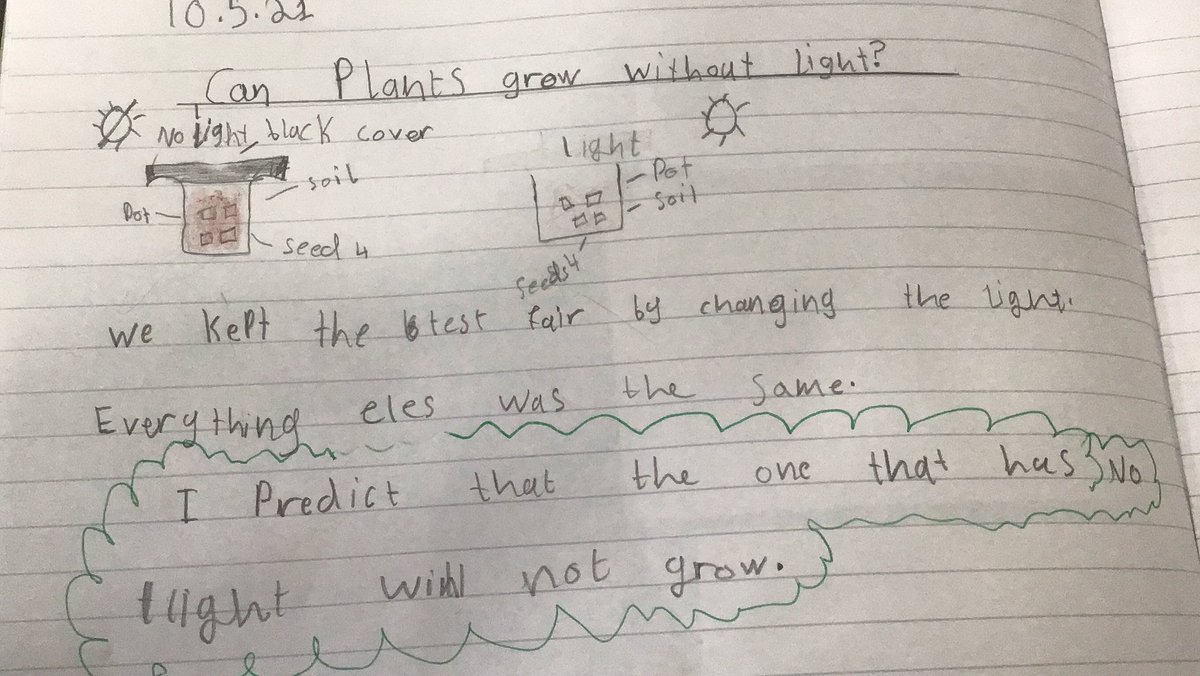 10.5.21
Can Plants grow without light?
No light black cover
light
Pot
soil
soil
Pot
seed 4
seeds 4
we kept the test fair by changing the light.
Everything eles was the same.
I Predict that the one that has No
light will not grow.